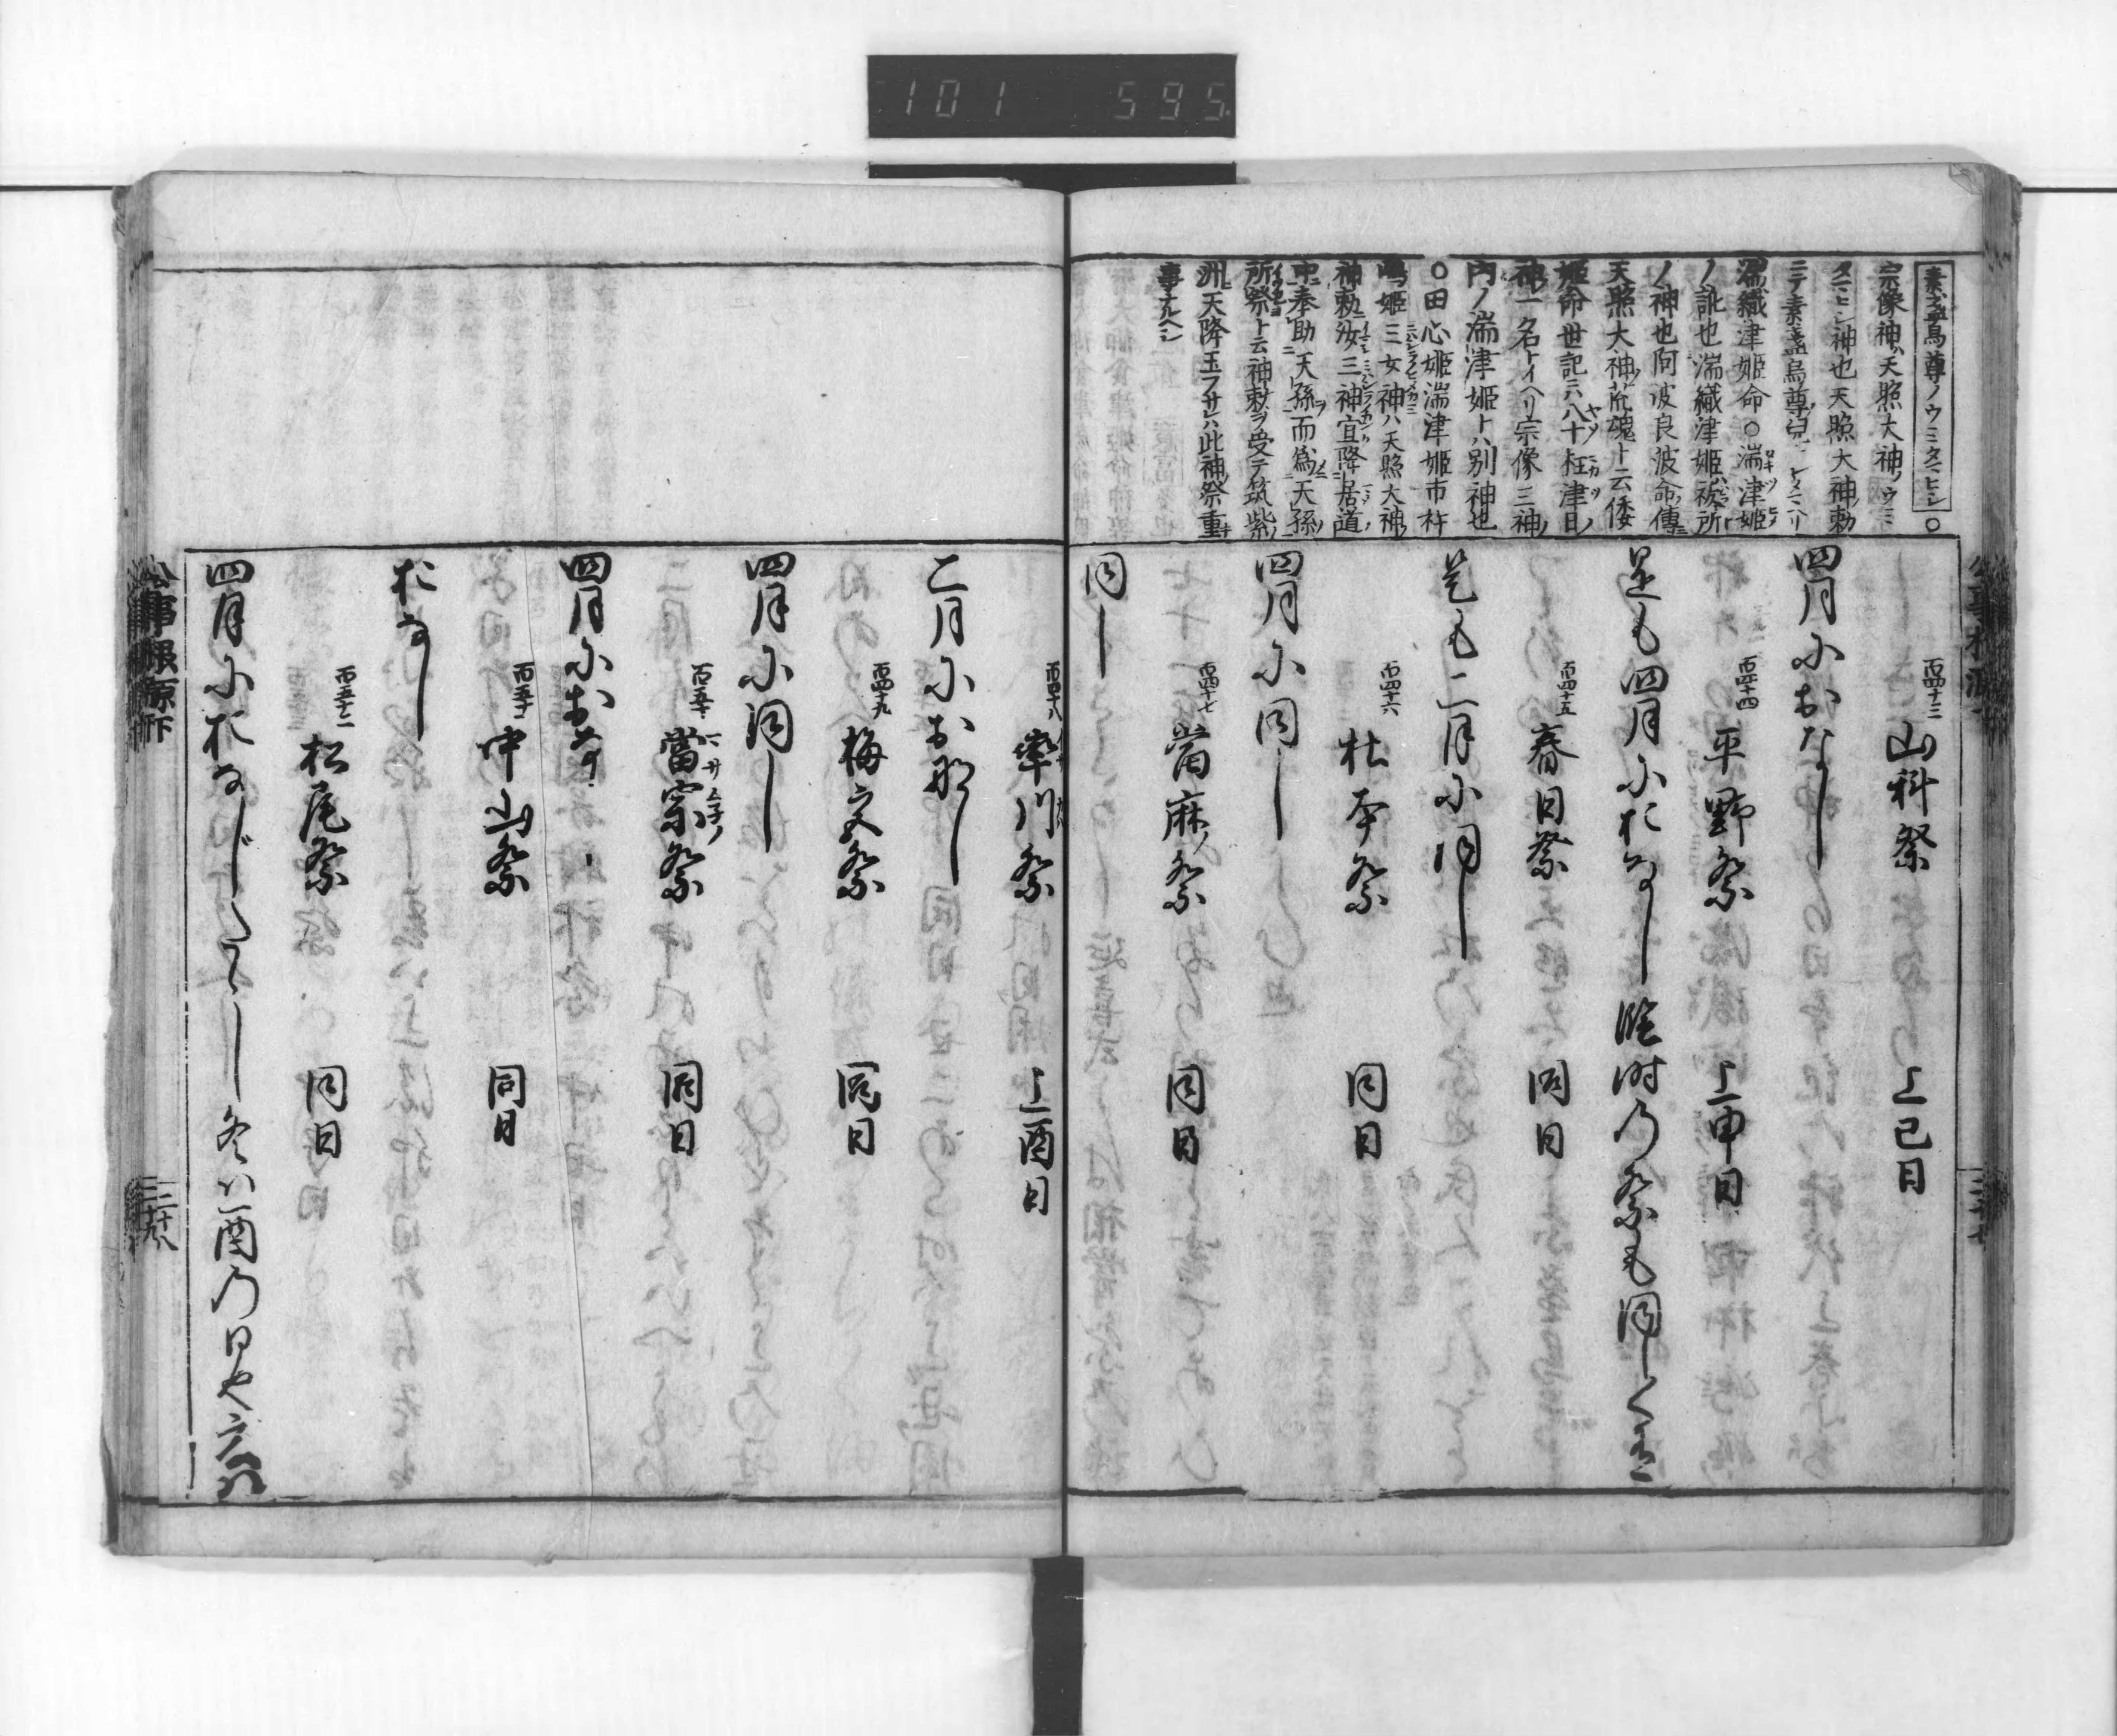 101 595
素盞烏尊ノウミタマヒシ○
宗像神ハ天照大神ノウミ
タマヒシ神也天照大神勅
ニテ素盞烏尊ノ兒トシタマヘリ
湍織津姫命○湍津姫
ノ訛也湍織津姫ハ祓所
ノ神也阿波良波命傳ニ
天照大神ノ荒魂ト云倭
姫命世記ニハ八十枉津日ノ
神ノ一名トイヘリ宗像三神ノ
内ノ湍津姫トハ別神也
○田心姫湍津姫市杵
嶋姫三女神ハ天照大神ノ
神勅汝三神宜降居道
中奉助天孫而爲天孫
所祭ト云神勅ヲ受テ筑紫ノ
洲ニ天降玉フサレハ此神祭重キ
事ナルヘシ
百四十三 山科祭 上巳日
四月におなし
百四十四 平野祭 上申日
是も四月におなし臨時の祭も同しく有
百四十五 春日祭 同日
是も二月に同し
百四十六 杜本祭 同日
四月に同し
百四十七 當麻祭 同日
同し
百四十八 率川祭 上酉日
二月にお那し
百四十九 梅宮祭 同日
四月に同し
百五十 當宗祭 同日
四月におなし
百五十一 中山祭 同日
おなし
百五十二 松尾祭 同日
四月におなじ
冬は酉の日也
公事根源下
二十八